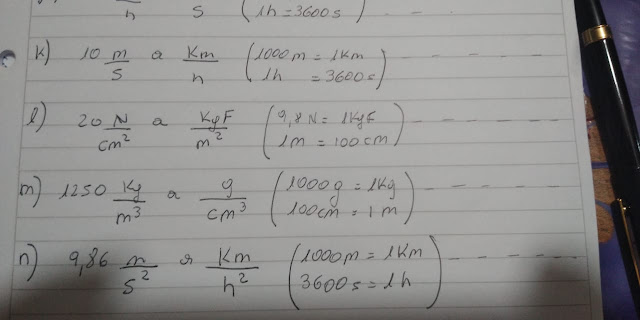 h s (1h = 3600 s)
k) 10 m/s a Km/h (1000m = 1Km
1h = 3600 s)
l) 20 N/cm² a KgF/m² (9,8 N = 1KgF
1m = 100 cm)
m) 1250 Kg/m³ a g/cm³ (1000g = 1Kg
100cm = 1m)
n) 9,86 m/s² a Km/h² (1000m = 1Km
3600s = 1h)